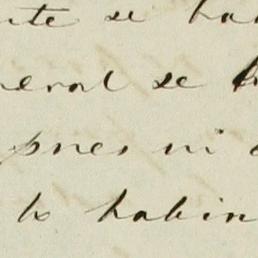 te se ha
neral se h
pues ni
lo habin